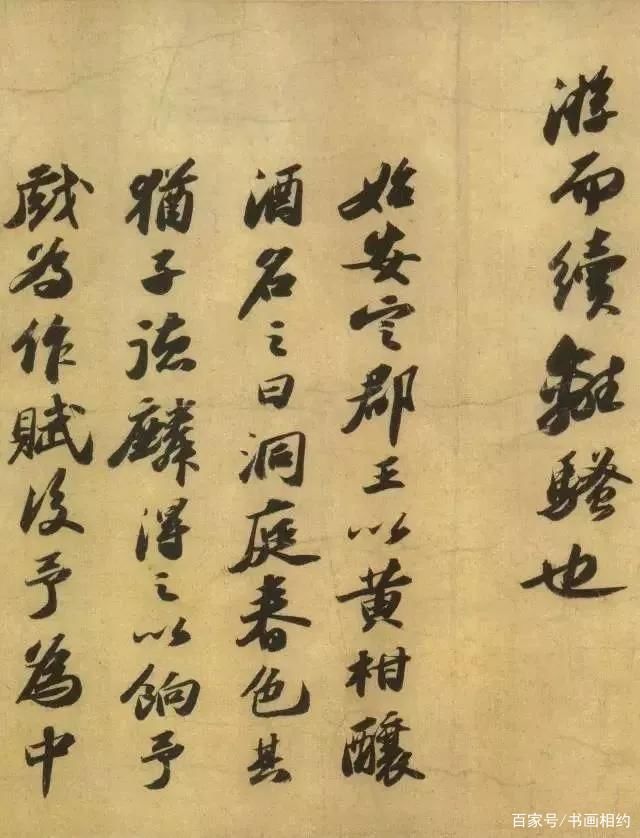 游而續離騷也
始安定郡王以黄柑釀
酒名之曰洞庭春色其
猶子德麟得之以餉予
戲為作賦後予為中
百家号/书画相约